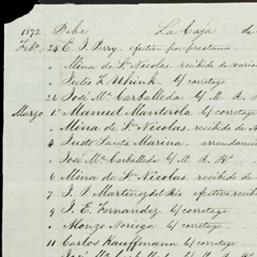 1872 Debe La Caja de
Febo. 24 E. I. Perry efectivo por prestamo
" Mina de Sn. Nicolas recibido de varios
" Julio F. Uhink c/ corretage
26 José Ma. Carballeda c/ M. R.
Marzo 1o. Manuel Manterola c/ corretage
" Mina de Sn. Nicolas recibido de
4 Justo Santa Marina arrendamiento
" José Ma. Carballeda c/ M. R. Ha.
6 Mina de Sn. Nicolas recibido de
7 J. P. Martinez del Rio efectivo recibido
9 J. E. Fernandez c/ corretage
" Alonzo Noriega c/ corretage
11 Carlos Kauffmann c/ corretage